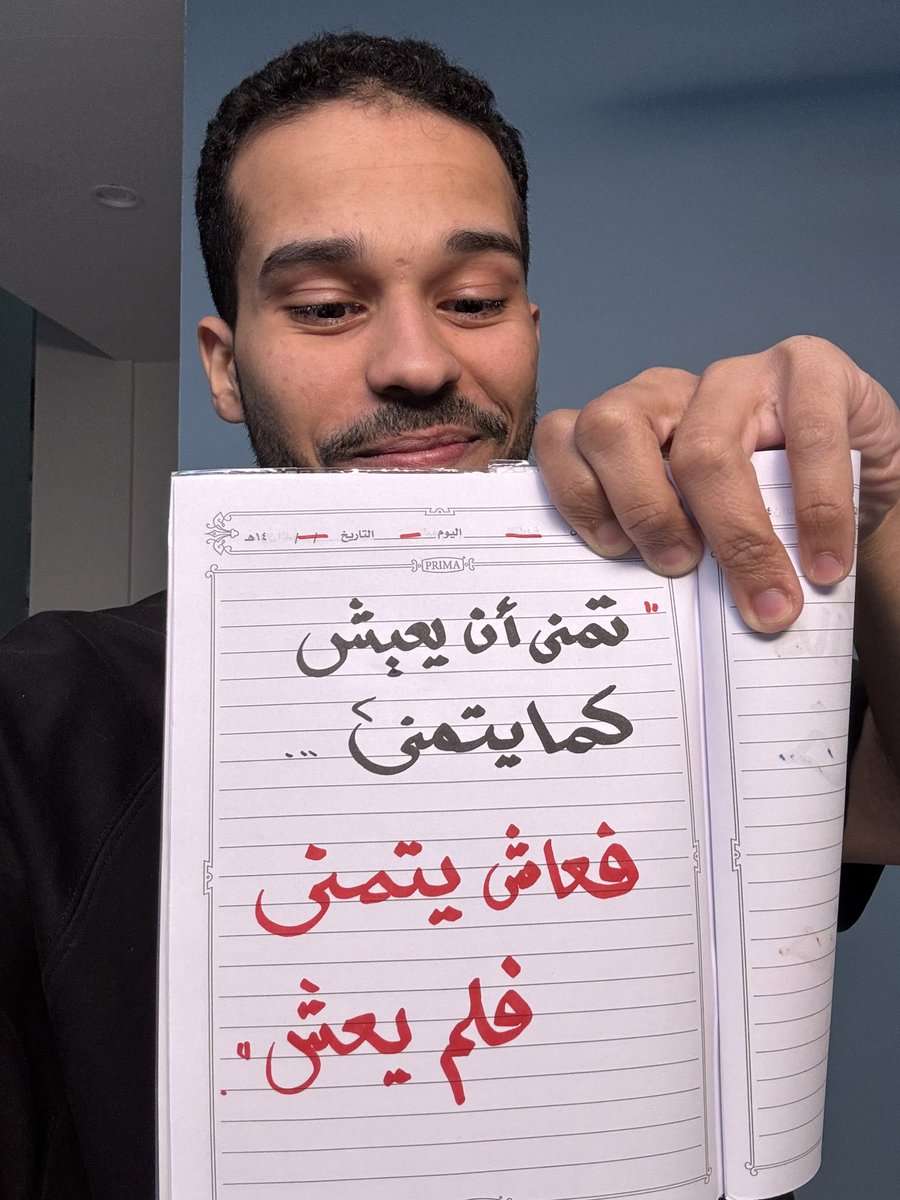 اليوم التاريخ ١٤هـ
PRIMA
"تمنى أن يعيش
كما يتمنى ...
فعاش يتمنى
فلم يعش".